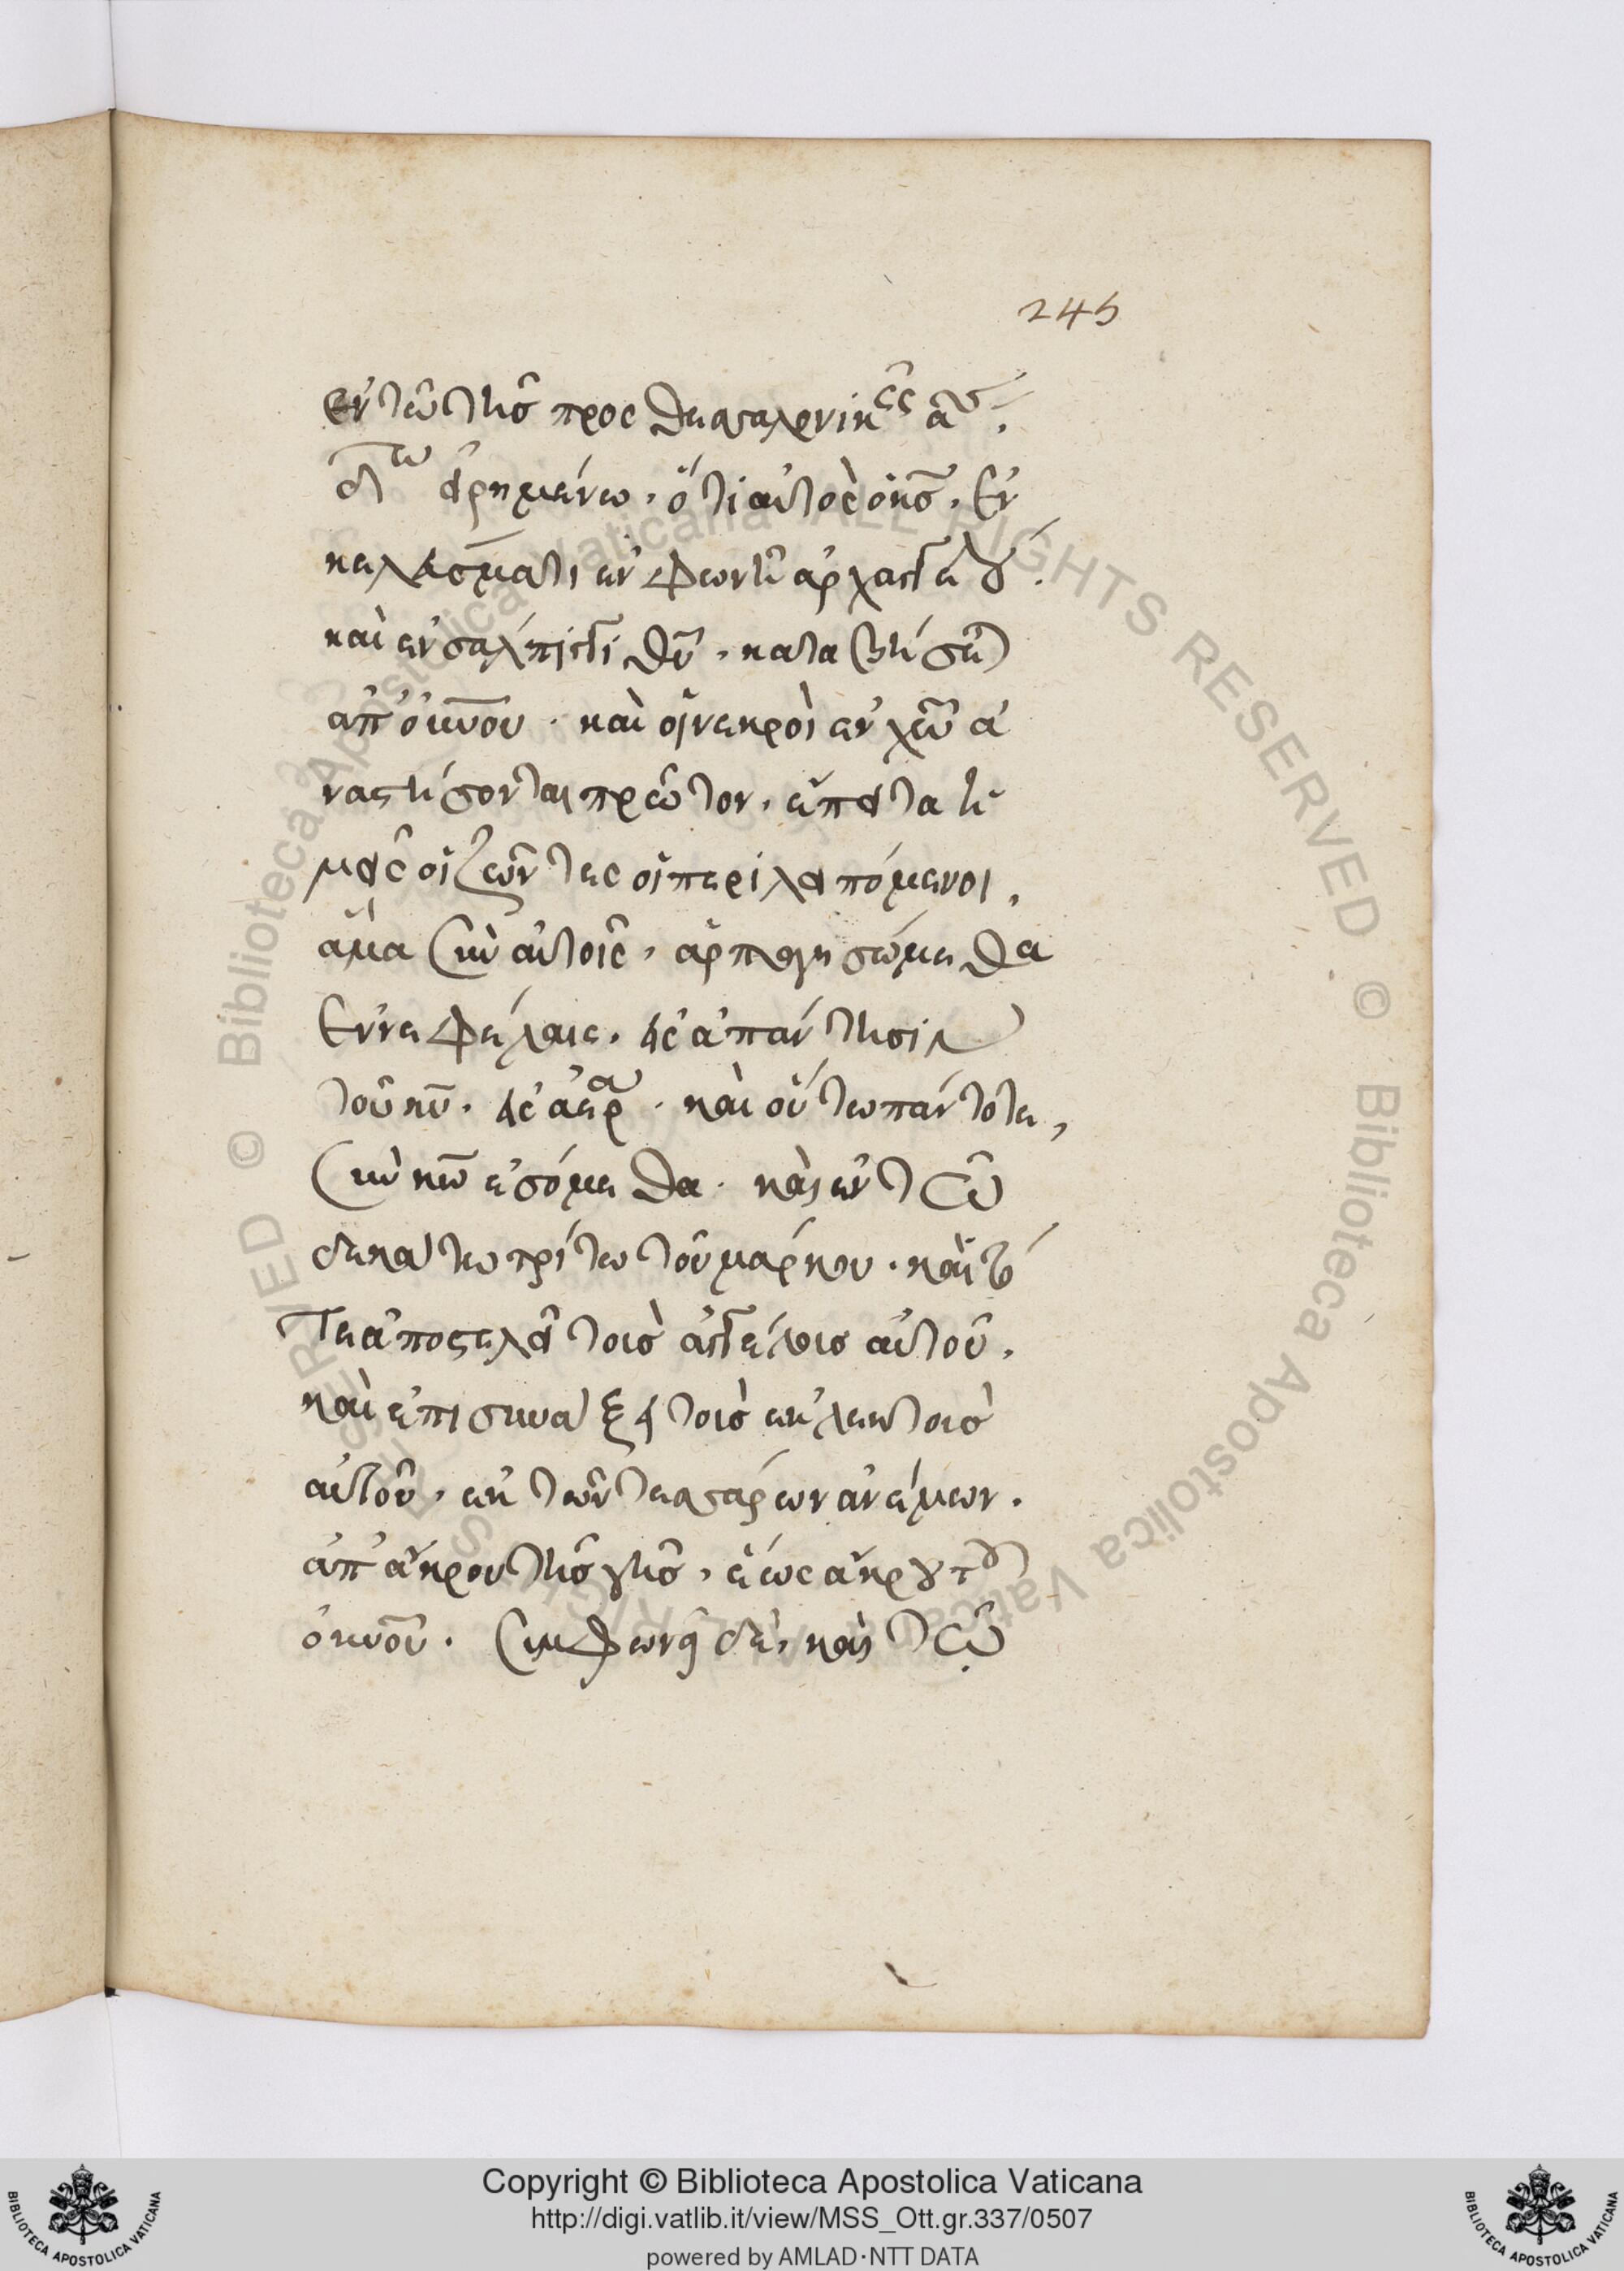 245
ἐν τῶ τῆσ προς θεσσαλονικεῖς α^σ.
δ^ω εἰρημένω, ὅτι αὐτὸς ὁ κ̅σ̅, ἐν
κελεύσματι ἐν φωνῆ ἀρχαγγέλου.
καὶ ἐν σάλπιγγι θ̅υ̅, καταβήσεται
ἀπ' ο̅υ̅ν̅ο̅υ̅. καὶ οἱ νεκροὶ ἐν χ̅ω̅ ἀ
ναστήσονται πρῶτον, ἔπειτα ἡ
μεῖς οἱ ζῶντες οἱ περιλειπόμενοι,
ἅμα σὺν αὐτοῖς, ἁρπαγησώμεθα
ἐν νεφέλαις. εἰς ἀπάντησιν
τοῦ κ̅υ̅. εἰς ἀέρα. καὶ οὕτω πάντοτε,
σὺν κ̅ω̅ ἐσόμεθα. καὶ ἐν τῶ
δεκάτω τρίτω τοῦ μάρκου. καὶ τό
τε ἀποστελεῖ τοὺσ ἀγγέλουσ αὐτοῦ.
καὶ ἐπισυνάξει τοὺσ ἐκλεκτοὺσ
αὐτοῦ, ἐκ τῶν τεσσάρων ἀνέμων.
ἀπ' ἄκρου τῆσ γῆσ, ἕως ἄκρου τοῦ
ο̅υ̅ν̅ο̅υ̅. συμφωνεῖ δὲ, καὶ τῶ
Copyright © Biblioteca Apostolica Vaticana
http://digi.vatlib.it/view/MSS_Ott.gr.337/0507
powered by AMLAD·NTT DATA
BIBLIOTECA APOSTOLICA VATICANA
BIBLIOTECA APOSTOLICA VATICANA
© Biblioteca Apostolica Vaticana ALL RIGHTS RESERVED © Biblioteca Apostolica Vaticana ALL RIGHTS RESERVED